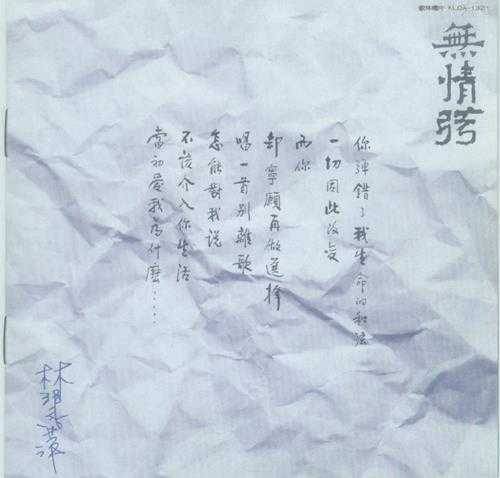 歌林唱片
無情弦
你彈錯了我生命的和弦
一切因此改變
而你
卻寧願再做選擇
唱一首別離歌
怎能對我說
不該介入你生活
當初愛我為什麼......